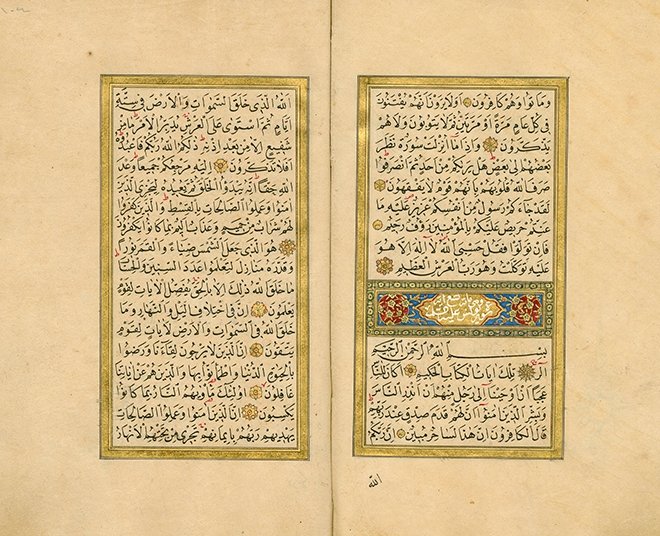 وماتوا وهم كافرون اولا يرون انهم يفتنون
في كل عام مرة او مرتين ثم لا يتوبون ولا هم
يذكرون واذا ما انزلت سورة نظر
بعضهم الى بعض هل يريكم من احد ثم انصرفوا
صرف الله قلوبهم بانهم قوم لا يفقهون
لقد جاءكم رسول من انفسكم عزيز عليه ما
عنتم حريص عليكم بالمؤمنين رؤف رحيم
فان تولوا فقل حسبي الله لا اله الا هو
عليه توكلت وهو رب العرش العظيم
بسم الله الرحمن الرحيم
الر تلك ايات الكتاب الحكيم اكان للناس
عجبا ان اوحينا الى رجل منهم ان انذر الناس
وبشر الذين امنوا ان لهم قدم صدق عند ربهم
قال الكافرون ان هذا لساحر مبين ان ربكم
الله
الله الذي خلق السموات والارض في ستة
ايام ثم استوى على العرش يدبر الامر ما من
شفيع الا من بعد اذنه ذلكم الله ربكم فاعبدوه
افلا تذكرون اليه مرجعكم جميعا وعد
الله حقا انه يبدؤا الخلق ثم يعيده ليجزي الذين
امنوا وعملوا الصالحات بالقسط والذين كفروا
لهم شراب من حميم وعذاب اليم بما كانوا يكفرون
هو الذي جعل الشمس ضياء والقمر نورا
وقدره منازل لتعلموا عدد السنين والحساب
ما خلق الله ذلك الا بالحق يفصل الايات لقوم
يعلمون ان في اختلاف الليل والنهار وما
خلق الله في السموات والارض لايات لقوم
يتقون ان الذين لا يرجون لقاءنا ورضوا
بالحيوة الدنيا واطمأنوا بها والذين هم عن اياتنا
غافلون اولئك مأويهم النار بما كانوا
يكسبون ان الذين امنوا وعملوا الصالحات
يهديهم ربهم بايمانهم تجري من تحتهم الانهار